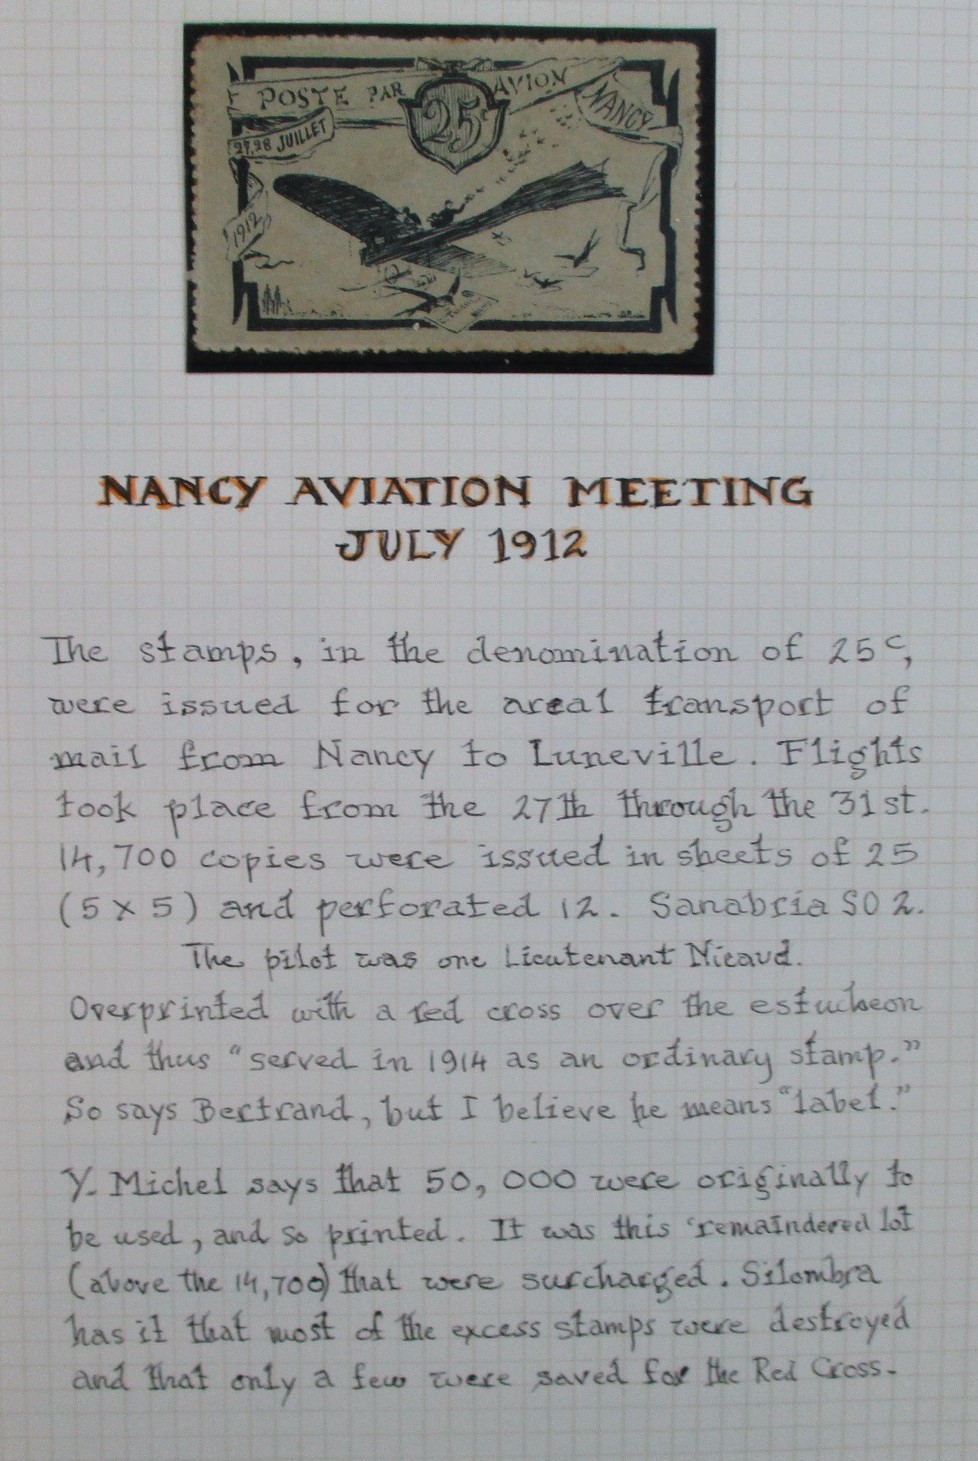 POSTE PAR AVION
25
NANCY
27.28 JUILLET
1912
NANCY AVIATION MEETING
JULY 1912
The stamps, in the denomination of 25c,
were issued for the areal transport of
mail from Nancy to Luneville. Flights
took place from the 27th through the 31st.
14,700 copies were issued in sheets of 25
(5 x 5) and perforated 12. Sanabria SO 2.
The pilot was one Lieutenant Nicaud.
Overprinted with a red cross over the estucheon
and thus "served in 1914 as an ordinary stamp."
So says Bertrand, but I believe he means "label."
Y. Michel says that 50,000 were originally to
be used, and so printed. It was this remaindered lot
(above the 14,700) that were surcharged. Silombra
has it that most of the excess stamps were destroyed
and that only a few were saved for the Red Cross.